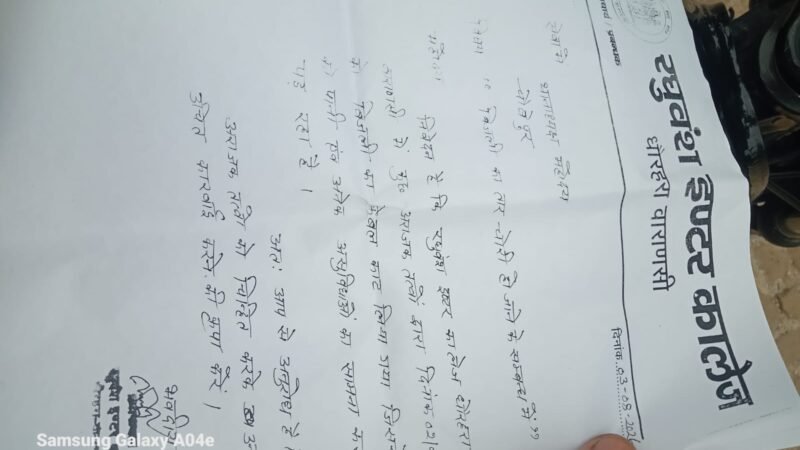 प्रबन्धक
रघुवंश इण्टर कालेज
धौरहरा वाराणसी
दिनांक 03-08-202
सेवा में
थानाध्यक्ष महोदय
चौबेपुर
विषय "बिजली का तार चोरी हो जाने के सम्बन्ध में"
महोदय
निवेदन है कि रघुवंश इण्टर कालेज धौरहरा
वाराणसी में कुछ अराजक तत्वों द्वारा दिनांक 02/0
को बिजली का केबल काट लिया गया जिससे
को पानी एवं अनेक असुविधाओं का सामना क
पड़ रहा है।
अतः आप से अनुरोध है
अराजक तत्वों को चिन्हित करके
उचित कारवाई करने की कृपा करें।
भवदीय
Samsung Galaxy A04e